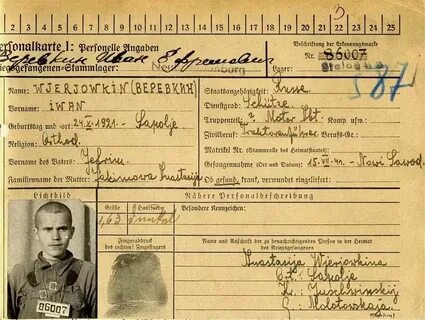 1 2 3 4 5 6 7 8 9 10 11 12 13 14 15 16 17 18 19 20 21 22 23 24 25
Personalkarte I: Personelle Angaben
Beschriftung der Erkennungsmarke
Веревкин Иван
Nr. 86007
Kriegsgefangenen-Stammlager:
Lager:
87
Name: WJERJOWKIN (ВЕРЕВКИН)
Vorname: IWAN
Geburtstag und -ort: 1921. Sapolje
Religion: Orthod.
Vorname des Vaters: Jefrim
Familienname der Mutter: Jakimowa Anastasija
Staatsangehörigkeit: Russe
Dienstgrad: Schütze
Truppenteil: Motor
Zivilberuf: Traktorenführer Berufs-Gr.:
Matrikel Nr. (Stammrolle des Heimatstaates):
Gefangennahme (Ort und Datum): 15. Nowi Sawod
Ob gesund, krank, verwundet eingeliefert:
Lichtbild
Nähere Personalbeschreibung
Größe
Haarfarbe
Besondere Kennzeichen:
1,63
dunkel
Fingerabdruck
des rechten Zeigefingers
Name und Anschrift der zu benachrichtigenden Person in der Heimat
des Kriegsgefangenen
Anastasija Wjerjowkina
Sapolje
G. Molotowskaja
86007